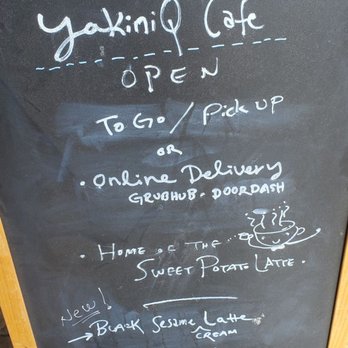 YakiniQ Cafe
OPEN
To Go / Pick UP
OR
• Online Delivery
GRUBHUB • DOORDASH
• HOME OF THE
SWEET POTATO LATTE •
New!
→ BLACK Sesame Latte
CREAM